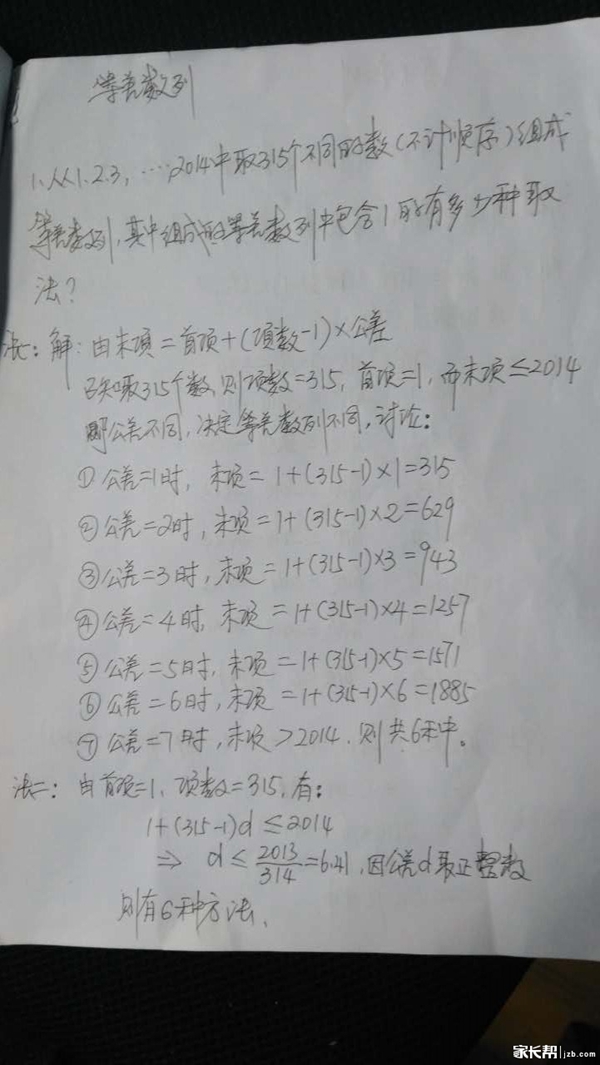 等差数列
1.从1.2.3,……2014中取315个不同的数(不计顺序)组成
等差数列,其中组成的等差数列中包含1的有多少种取
法?
法一:解:由末项=首项+(项数-1)×公差
已知取315个数,则项数=315,首项=1,而末项≤2014
即公差不同,决定等差数列不同,讨论:
①公差=1时,末项=1+(315-1)×1=315
②公差=2时,末项=1+(315-1)×2=629
③公差=3时,末项=1+(315-1)×3=943
④公差=4时,末项=1+(315-1)×4=1257
⑤公差=5时,末项=1+(315-1)×5=1571
⑥公差=6时,末项=1+(315-1)×6=1885
⑦公差=7时,末项>2014.则共6种。
法二:由首项=1,项数=315,有:
1+(315-1)d≤2014
⇒ d≤2013/314=6.41,因公差d取正整数
则有6种方法.
家长帮 jzb.com